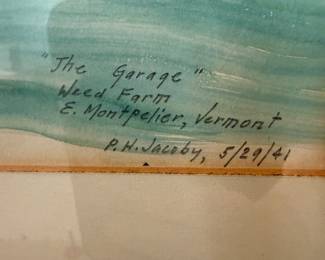 "The Garage"
Weed Farm
E. Montpelier, Vermont
P.H. Jacoby, 5/29/41